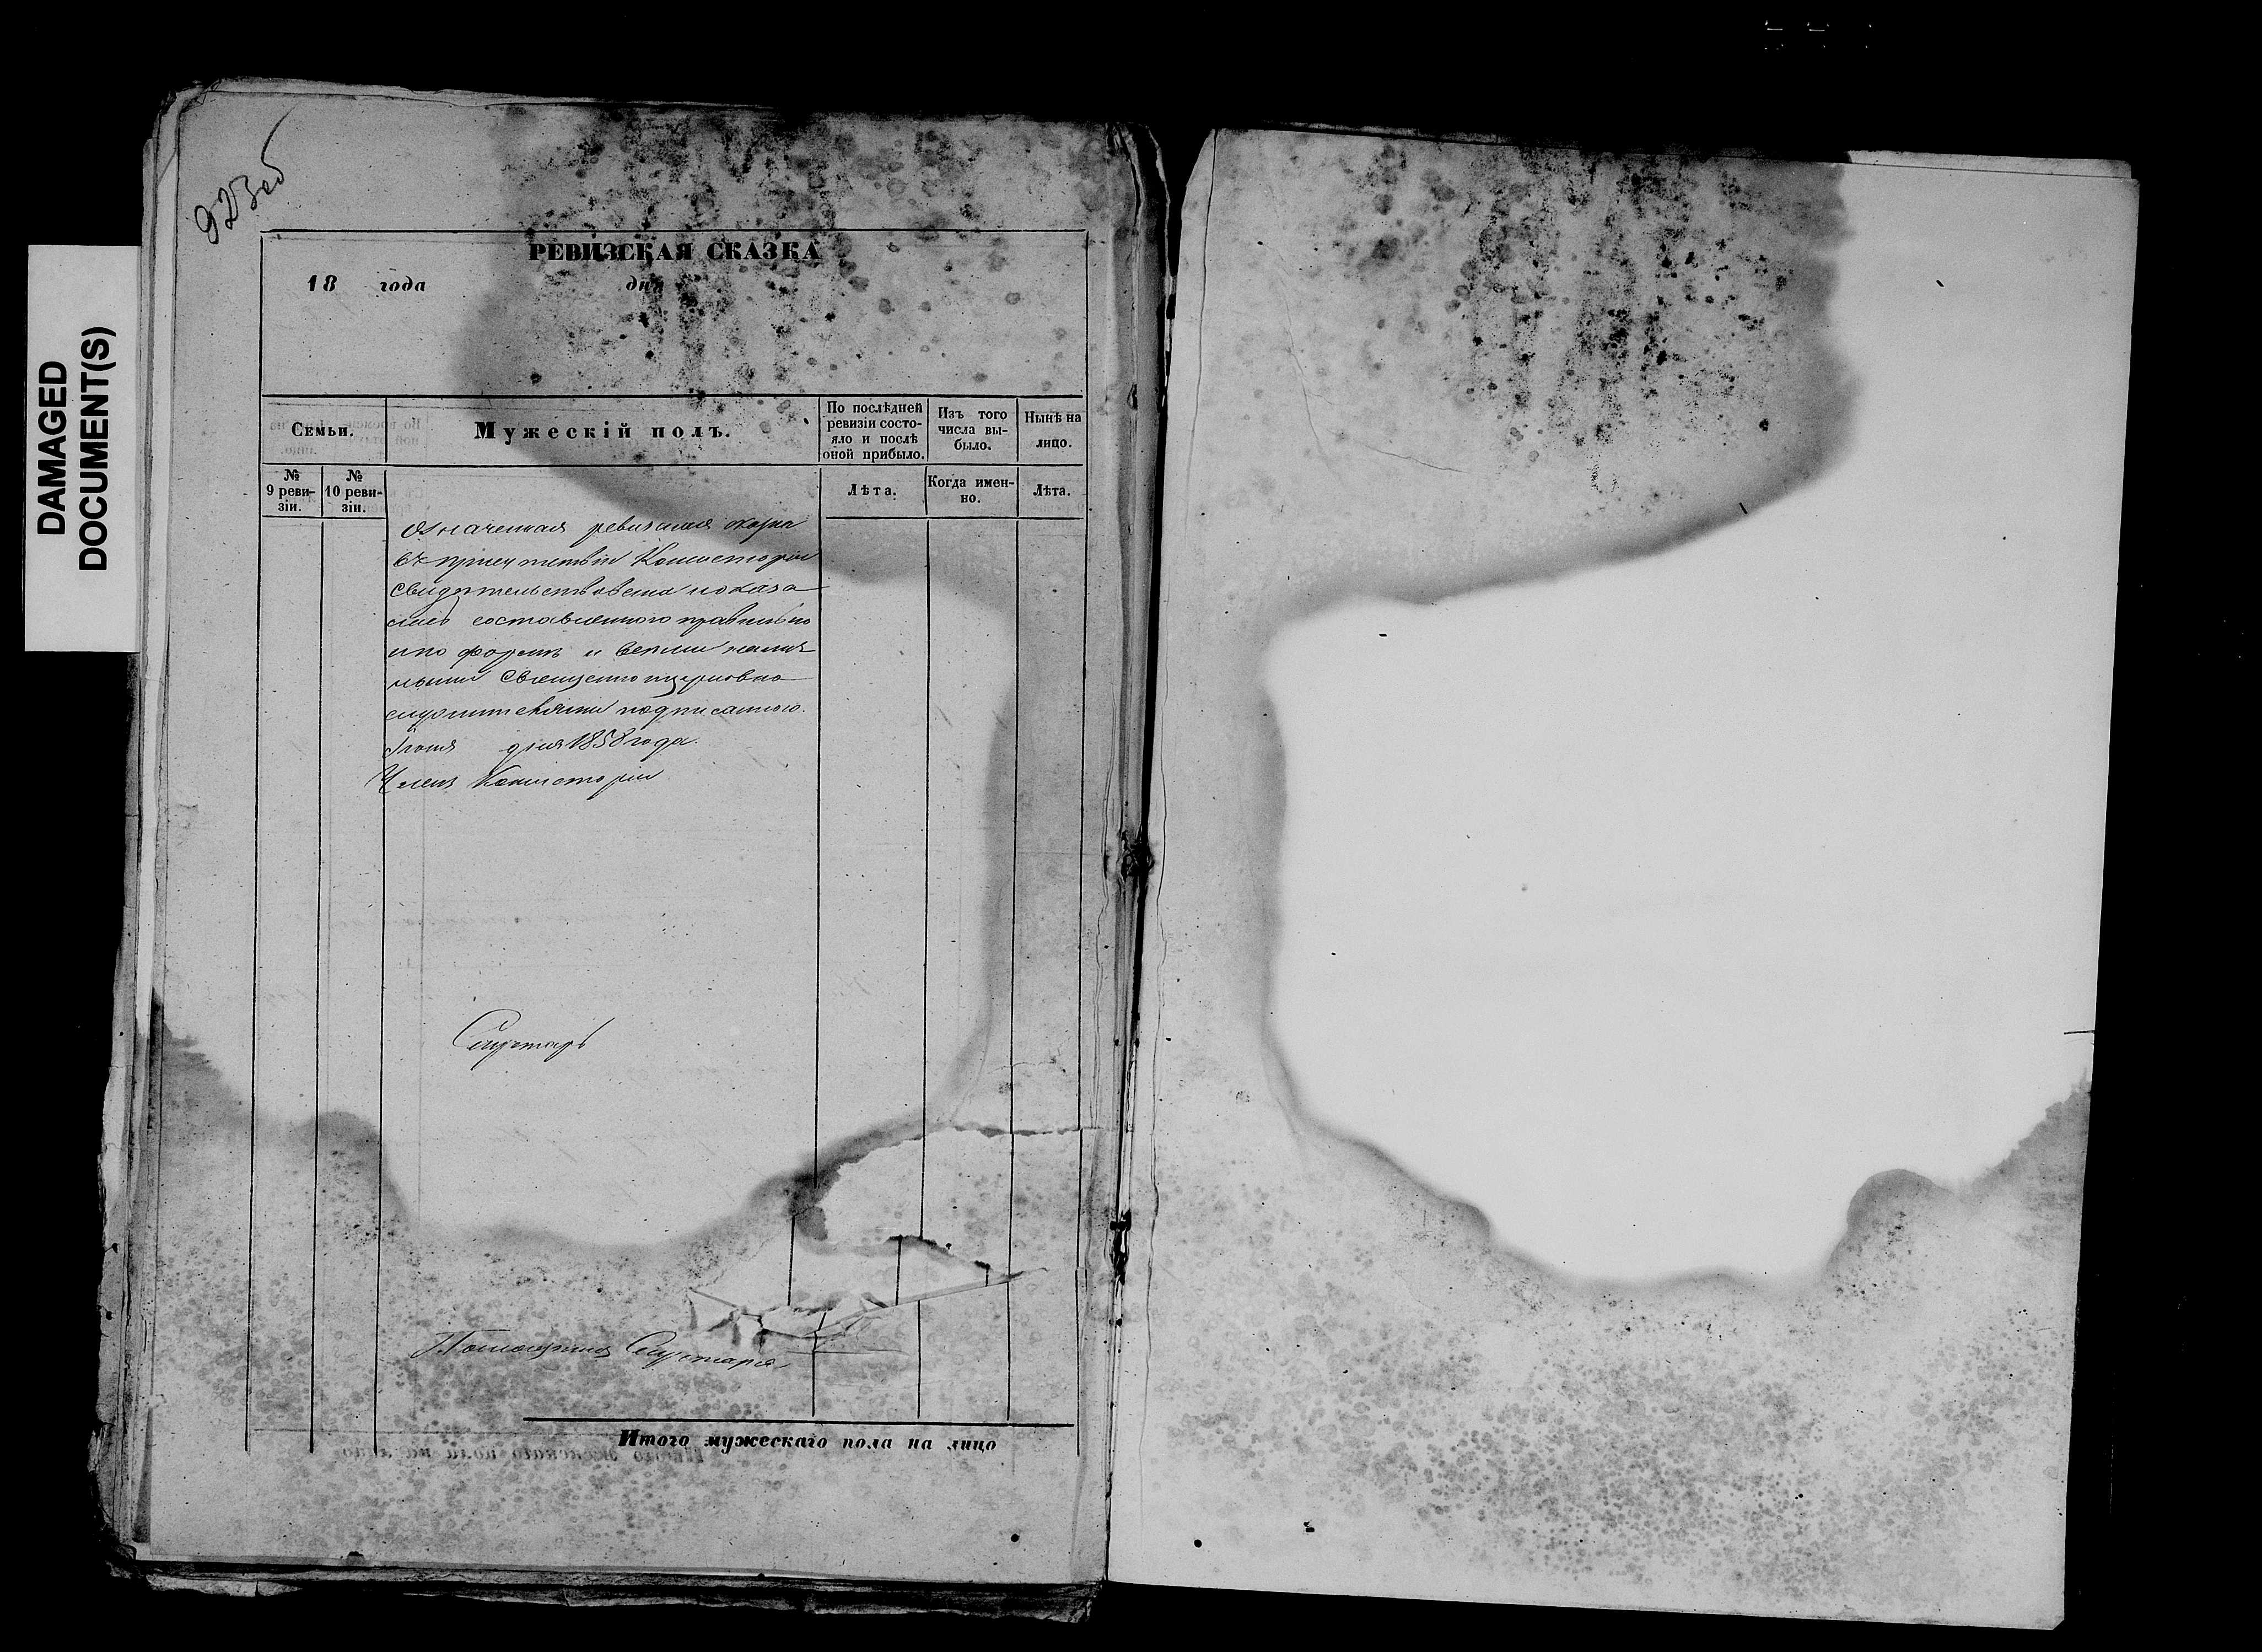 DAMAGED
DOCUMENT(S)
923об
РЕВИЗСКАЯ СКАЗКА
18 года дня
Семьи.
Мужескій полъ.
По послѣдней
ревизіи состо-
яло и послѣ
оной прибыло.
Изъ того
числа вы-
было.
Нынѣ на
лицо.
№
9 реви-
зіи.
№
10 реви-
зіи.
Лѣта.
Когда имен-
но.
Лѣта.
Означенная ревизская сказка
въ присутствіи Консисторіи
свидѣтельствована и оказа
лась составленною правильно
и по формѣ и всѣми налич
ными священноцерковно
служителями подписанною.
Іюня дня 1858 года.
Членъ Консисторіи
Секретарь
Помощникъ Секретаря
Итого мужескаго пола на лицо